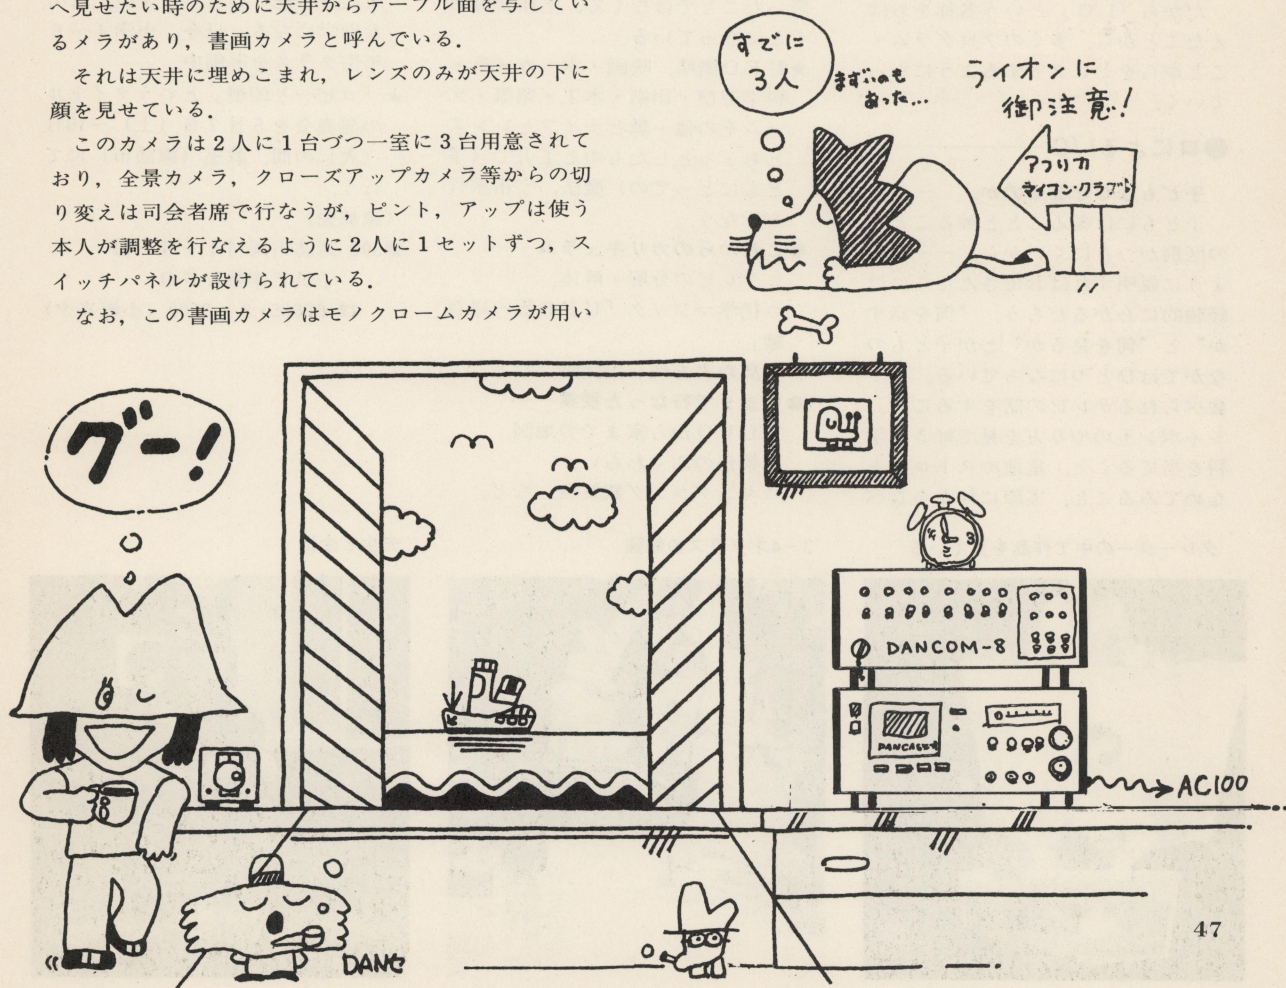 へ見せたい時のために天井からテーブル面を写してい
るメラがあり，書画カメラと呼んでいる．
それは天井に埋めこまれ，レンズのみが天井の下に
顔を見せている．
このカメラは２人に１台づつ一室に３台用意されて
おり，全景カメラ，クローズアップカメラ等からの切
り変えは司会者席で行なうが，ピント，アップは使う
本人が調整を行なえるように２人に１セットずつ，ス
イッチパネルが設けられている．
なお，この書画カメラはモノクロームカメラが用い
すでに
3人
まずいのも
あった…
ライオンに
御注意!
アフリカ
マイコン・クラブ
グー!
DANCOM-8
AC100
DANC
47